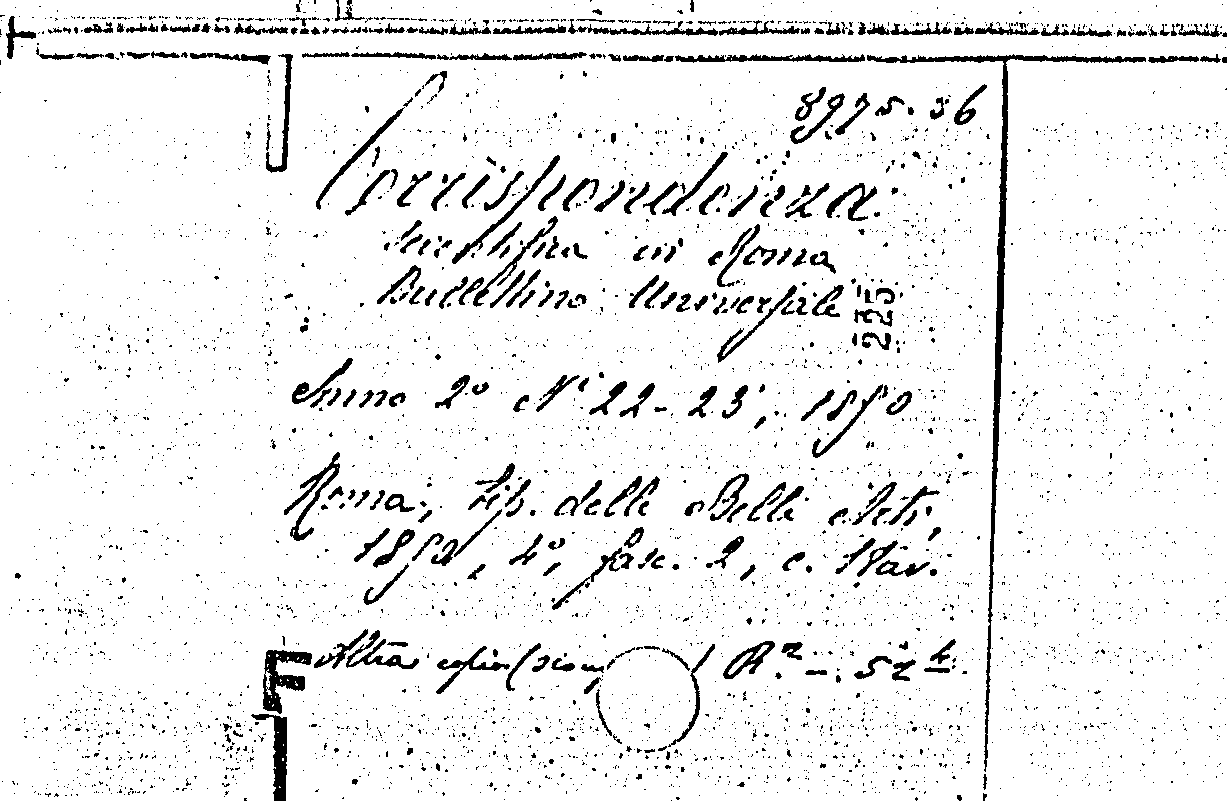 8975.36
Corrispondenza
scientifica in Roma
Bullettino Universale
225
Anno 2° N° 22-23, 1850
Roma, Tip. delle Belle Arti,
1852, 4°, fasc. 2, c. 1 tav.
Altra copia (